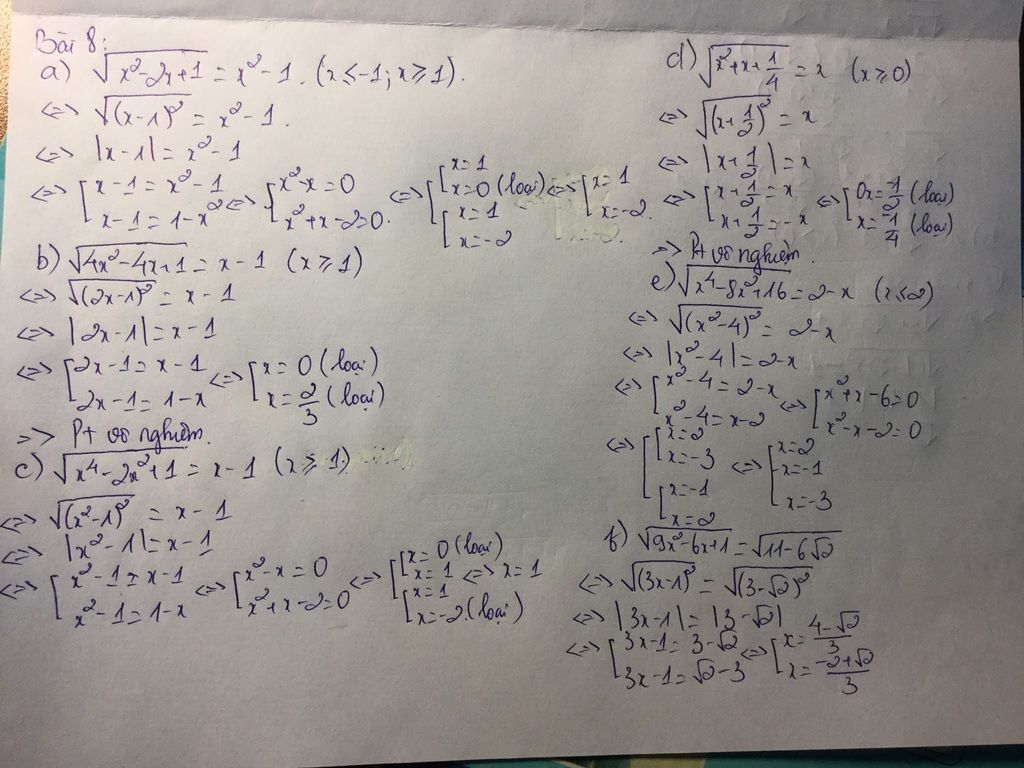 Bài 8:
a) √(x²-2x+1) = x²-1. (x≤-1; x≥1).
<=> √((x-1)²) = x²-1.
<=> |x-1| = x²-1
<=> [x-1 = x²-1 <=> [x²-x=0 <=> [[x=1 <=> [x=1
x-1 = 1-x² x²+x-2=0. x=0 (loại) x=-2.
[x=1
x=-2
b) √(4x²-4x+1) = x-1 (x≥1)
<=> √((2x-1)²) = x-1
<=> |2x-1| = x-1
<=> [2x-1 = x-1 <=> [x=0 (loại)
2x-1 = 1-x x=2/3 (loại)
=> Pt vô nghiệm.
c) √(x⁴-2x²+1) = x-1 (x≥1)
<=> √((x²-1)²) = x-1
<=> |x²-1| = x-1
<=> [x²-1 = x-1 <=> [x²-x=0 <=> [[x=0 (loại)
x²-1 = 1-x x²+x-2=0 x=1 <=> x=1
[x=1
x=-2. (loại)
d) √(x²+x+1/4) = x (x≥0)
<=> √((x+1/2)²) = x
<=> |x+1/2| = x
<=> [x+1/2 = x <=> [0x = -1/2 (loại)
x+1/2 = -x x = -1/4 (loại)
=> Pt vô nghiệm.
e) √(x⁴-8x²+16) = 2-x (x≤2)
<=> √((x²-4)²) = 2-x
<=> |x²-4| = 2-x
<=> [x²-4 = 2-x <=> [x²+x-6=0
x²-4 = x-2 x²-x-2=0
<=> [[x=2 <=> [x=2
x=-3 x=-1
[x=-1 x=-3
x=2
f) √(9x²-6x+1) = √(11-6√2)
<=> √((3x-1)²) = √((3-√2)²)
<=> |3x-1| = |3-√2|
<=> [3x-1 = 3-√2 <=> [x = (4-√2)/3
3x-1 = √2-3 x = (-2+√2)/3